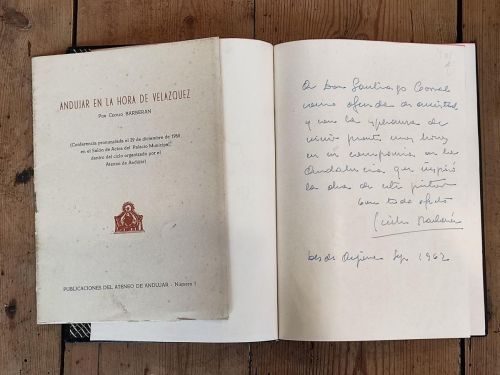 ANDUJAR EN LA HORA DE VELAZQUEZ
Por Cecilio BARBERAN
(Conferencia pronunciada el 29 de diciembre de 1959
en el Salón de Actos del Palacio Municipal,
dentro del ciclo organizado por el
Ateneo de Andújar)
PUBLICACIONES DEL ATENEO DE ANDUJAR - Número 1
A Don Santiago Corral
como ofrenda de amistad
y con la esperanza de
vivir pronto unas horas
en su compañía en la
Andalucía que inspiró
la obra de este pintor
Con todo afecto
Cecilio Barberán
Sep. 1962